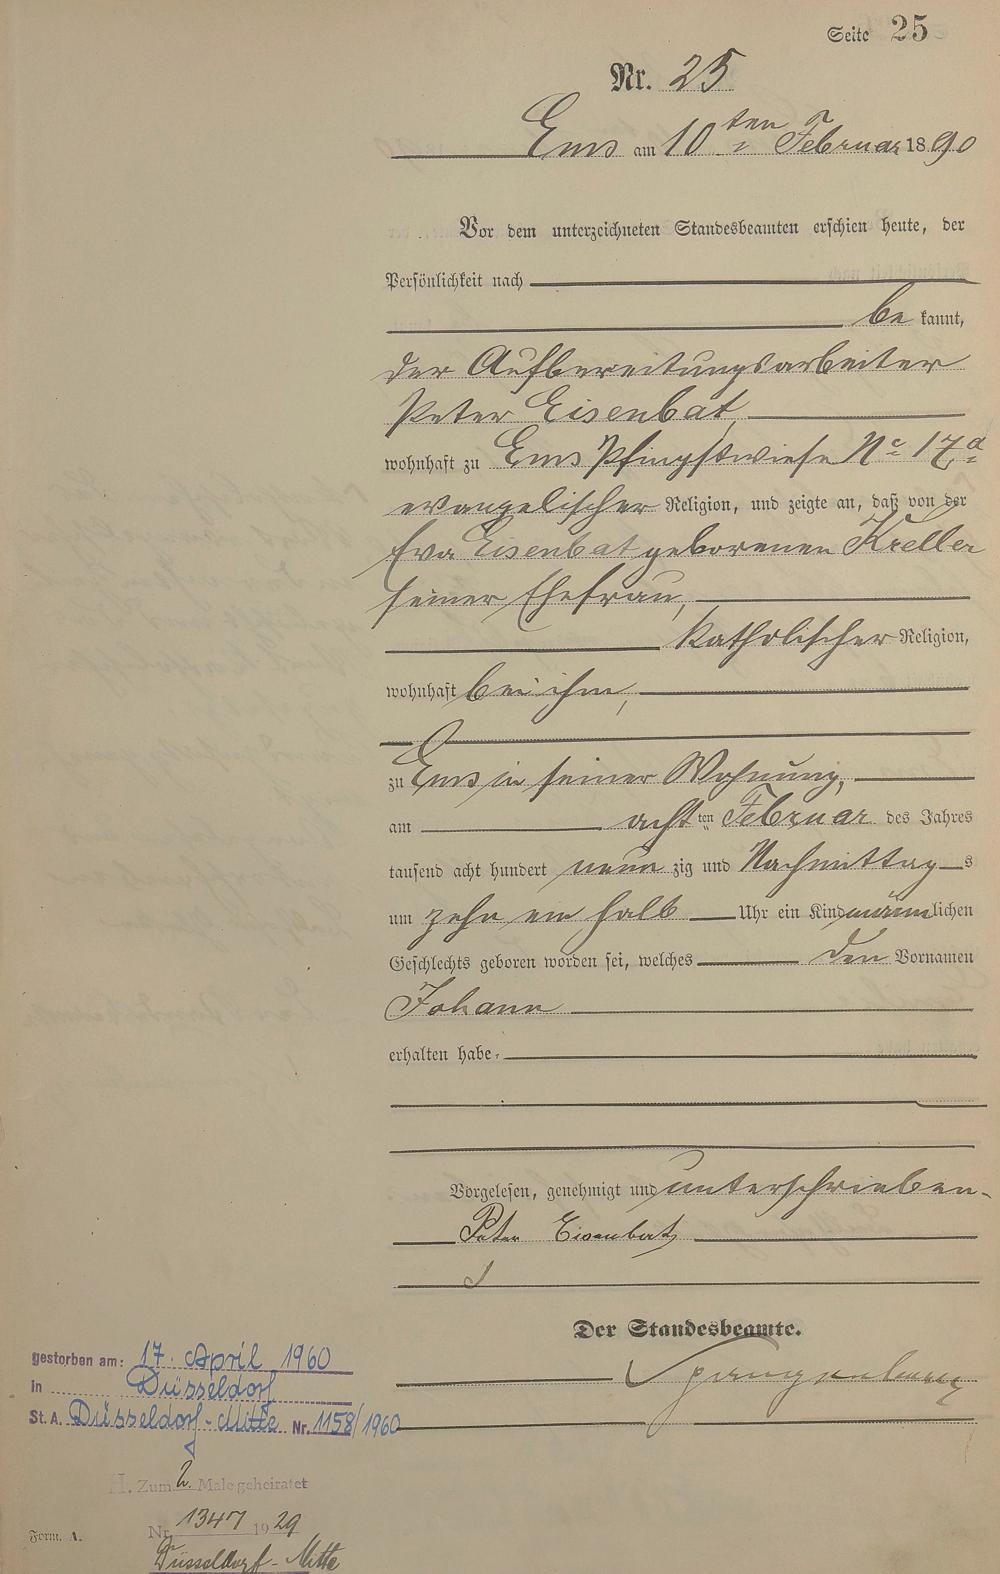 Seite 25
Nr. 25
Ems am 10ten Februar 1890
Vor dem unterzeichneten Standesbeamten erschien heute, der
Persönlichkeit nach
be kannt,
der Aufbereitungsarbeiter
Peter Eisenbat,
wohnhaft zu Ems Pfingstwiese No 17a
evangelischer Religion, und zeigte an, daß von der
Eva Eisenbat geborenen Kreller
seiner Ehefrau,
katholischer Religion,
wohnhaft bei ihm,
zu Ems in seiner Wohnung,
am achtten Februar des Jahres
tausend acht hundert neun zig und Nachmittag s
um zehn ein halb Uhr ein Kind männlichen
Geschlechts geboren worden sei, welches den Vornamen
Johann
erhalten habe.
Vorgelesen, genehmigt und unterschrieben.
Peter Eisenbat
Der Standesbeamte.
gestorben am: 17. April 1960
in Düsseldorf
St. A. Düsseldorf-Mitte Nr. 1158/1960
H. Zum 2. Male geheiratet
Nr. 1347 1929
Düsseldorf-Mitte
Form. A.